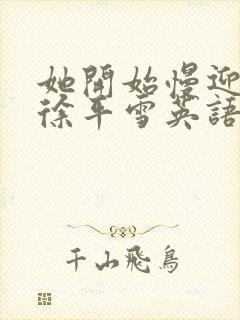 她開始慢迎
徐平雪英語
千山飛鳥